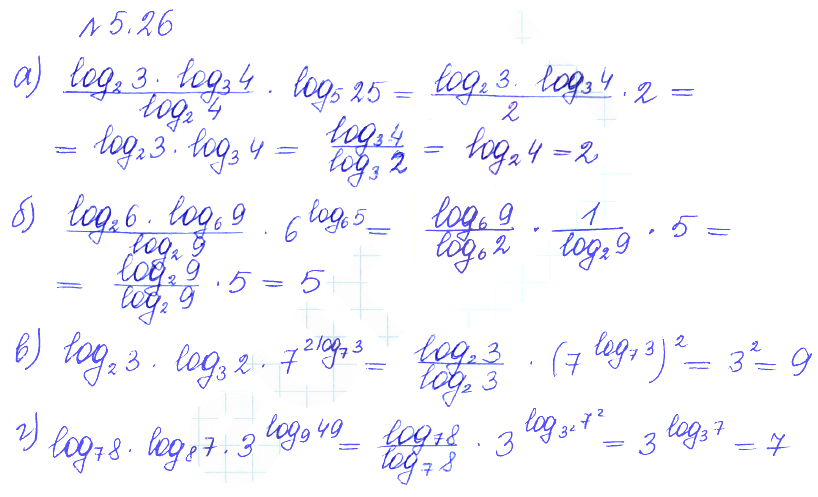 № 5.26
а) (log₂3 · log₃4)/(log₂4) · log₅25 = (log₂3 · log₃4)/2 · 2 =
= log₂3 · log₃4 = (log₃4)/(log₃2) = log₂4 = 2
б) (log₂6 · log₆9)/(log₂9) · 6^(log₆5) = (log₆9)/(log₆2) · 1/(log₂9) · 5 =
= (log₂9)/(log₂9) · 5 = 5
в) log₂3 · log₃2 · 7^(2log₇3) = (log₂3)/(log₂3) · (7^(log₇3))² = 3² = 9
г) log₇8 · log₈7 · 3^(log₉49) = (log₇8)/(log₇8) · 3^(log_(3²)7²) = 3^(log₃7) = 7